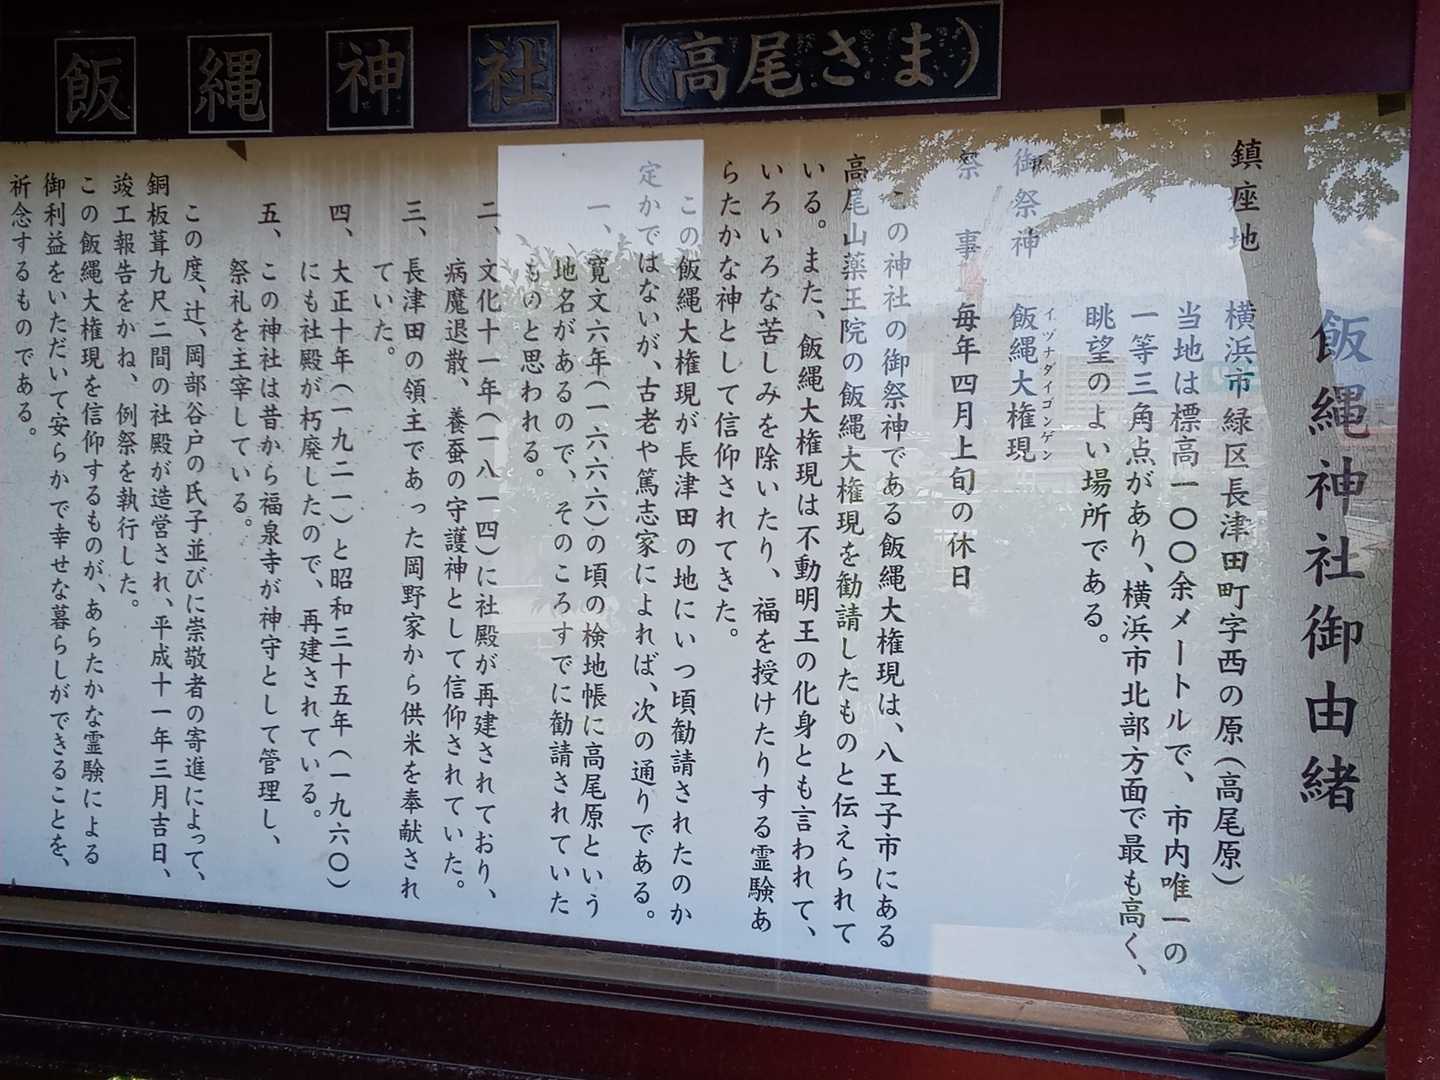 飯縄神社(高尾さま)
飯縄神社御由緒
鎮座地　横浜市緑区長津田町字西の原(高尾原)
当地は標高一〇〇余メートルで、市内唯一の
一等三角点があり、横浜市北部方面で最も高く、
眺望のよい場所である。
イヅナダイゴンゲン
御祭神　飯縄大権現
祭　事　毎年四月上旬の休日
この神社の御祭神である飯縄大権現は、八王子市にある
高尾山薬王院の飯縄大権現を勧請したものと伝えられて
いる。また、飯縄大権現は不動明王の化身とも言われて、
いろいろな苦しみを除いたり、福を授けたりする霊験あ
らたかな神として信仰されてきた。
この飯縄大権現が長津田の地にいつ頃勧請されたのか
定かではないが、古老や篤志家によれば、次の通りである。
一、寛文六年(一六六六)の頃の検地帳に高尾原という
地名があるので、そのころすでに勧請されていた
ものと思われる。
二、文化十一年(一八一四)に社殿が再建されており、
病魔退散、養蚕の守護神として信仰されていた。
三、長津田の領主であった岡野家から供米を奉献され
ていた。
四、大正十年(一九二一)と昭和三十五年(一九六〇)
にも社殿が朽廃したので、再建されている。
五、この神社は昔から福泉寺が神守として管理し、
祭礼を主宰している。
この度、辻、岡部谷戸の氏子並びに崇敬者の寄進によって、
銅板葺九尺二間の社殿が造営され、平成十一年三月吉日、
竣工報告をかね、例祭を執行した。
この飯縄大権現を信仰するものが、あらたかな霊験による
御利益をいただいて安らかで幸せな暮らしができることを、
祈念するものである。